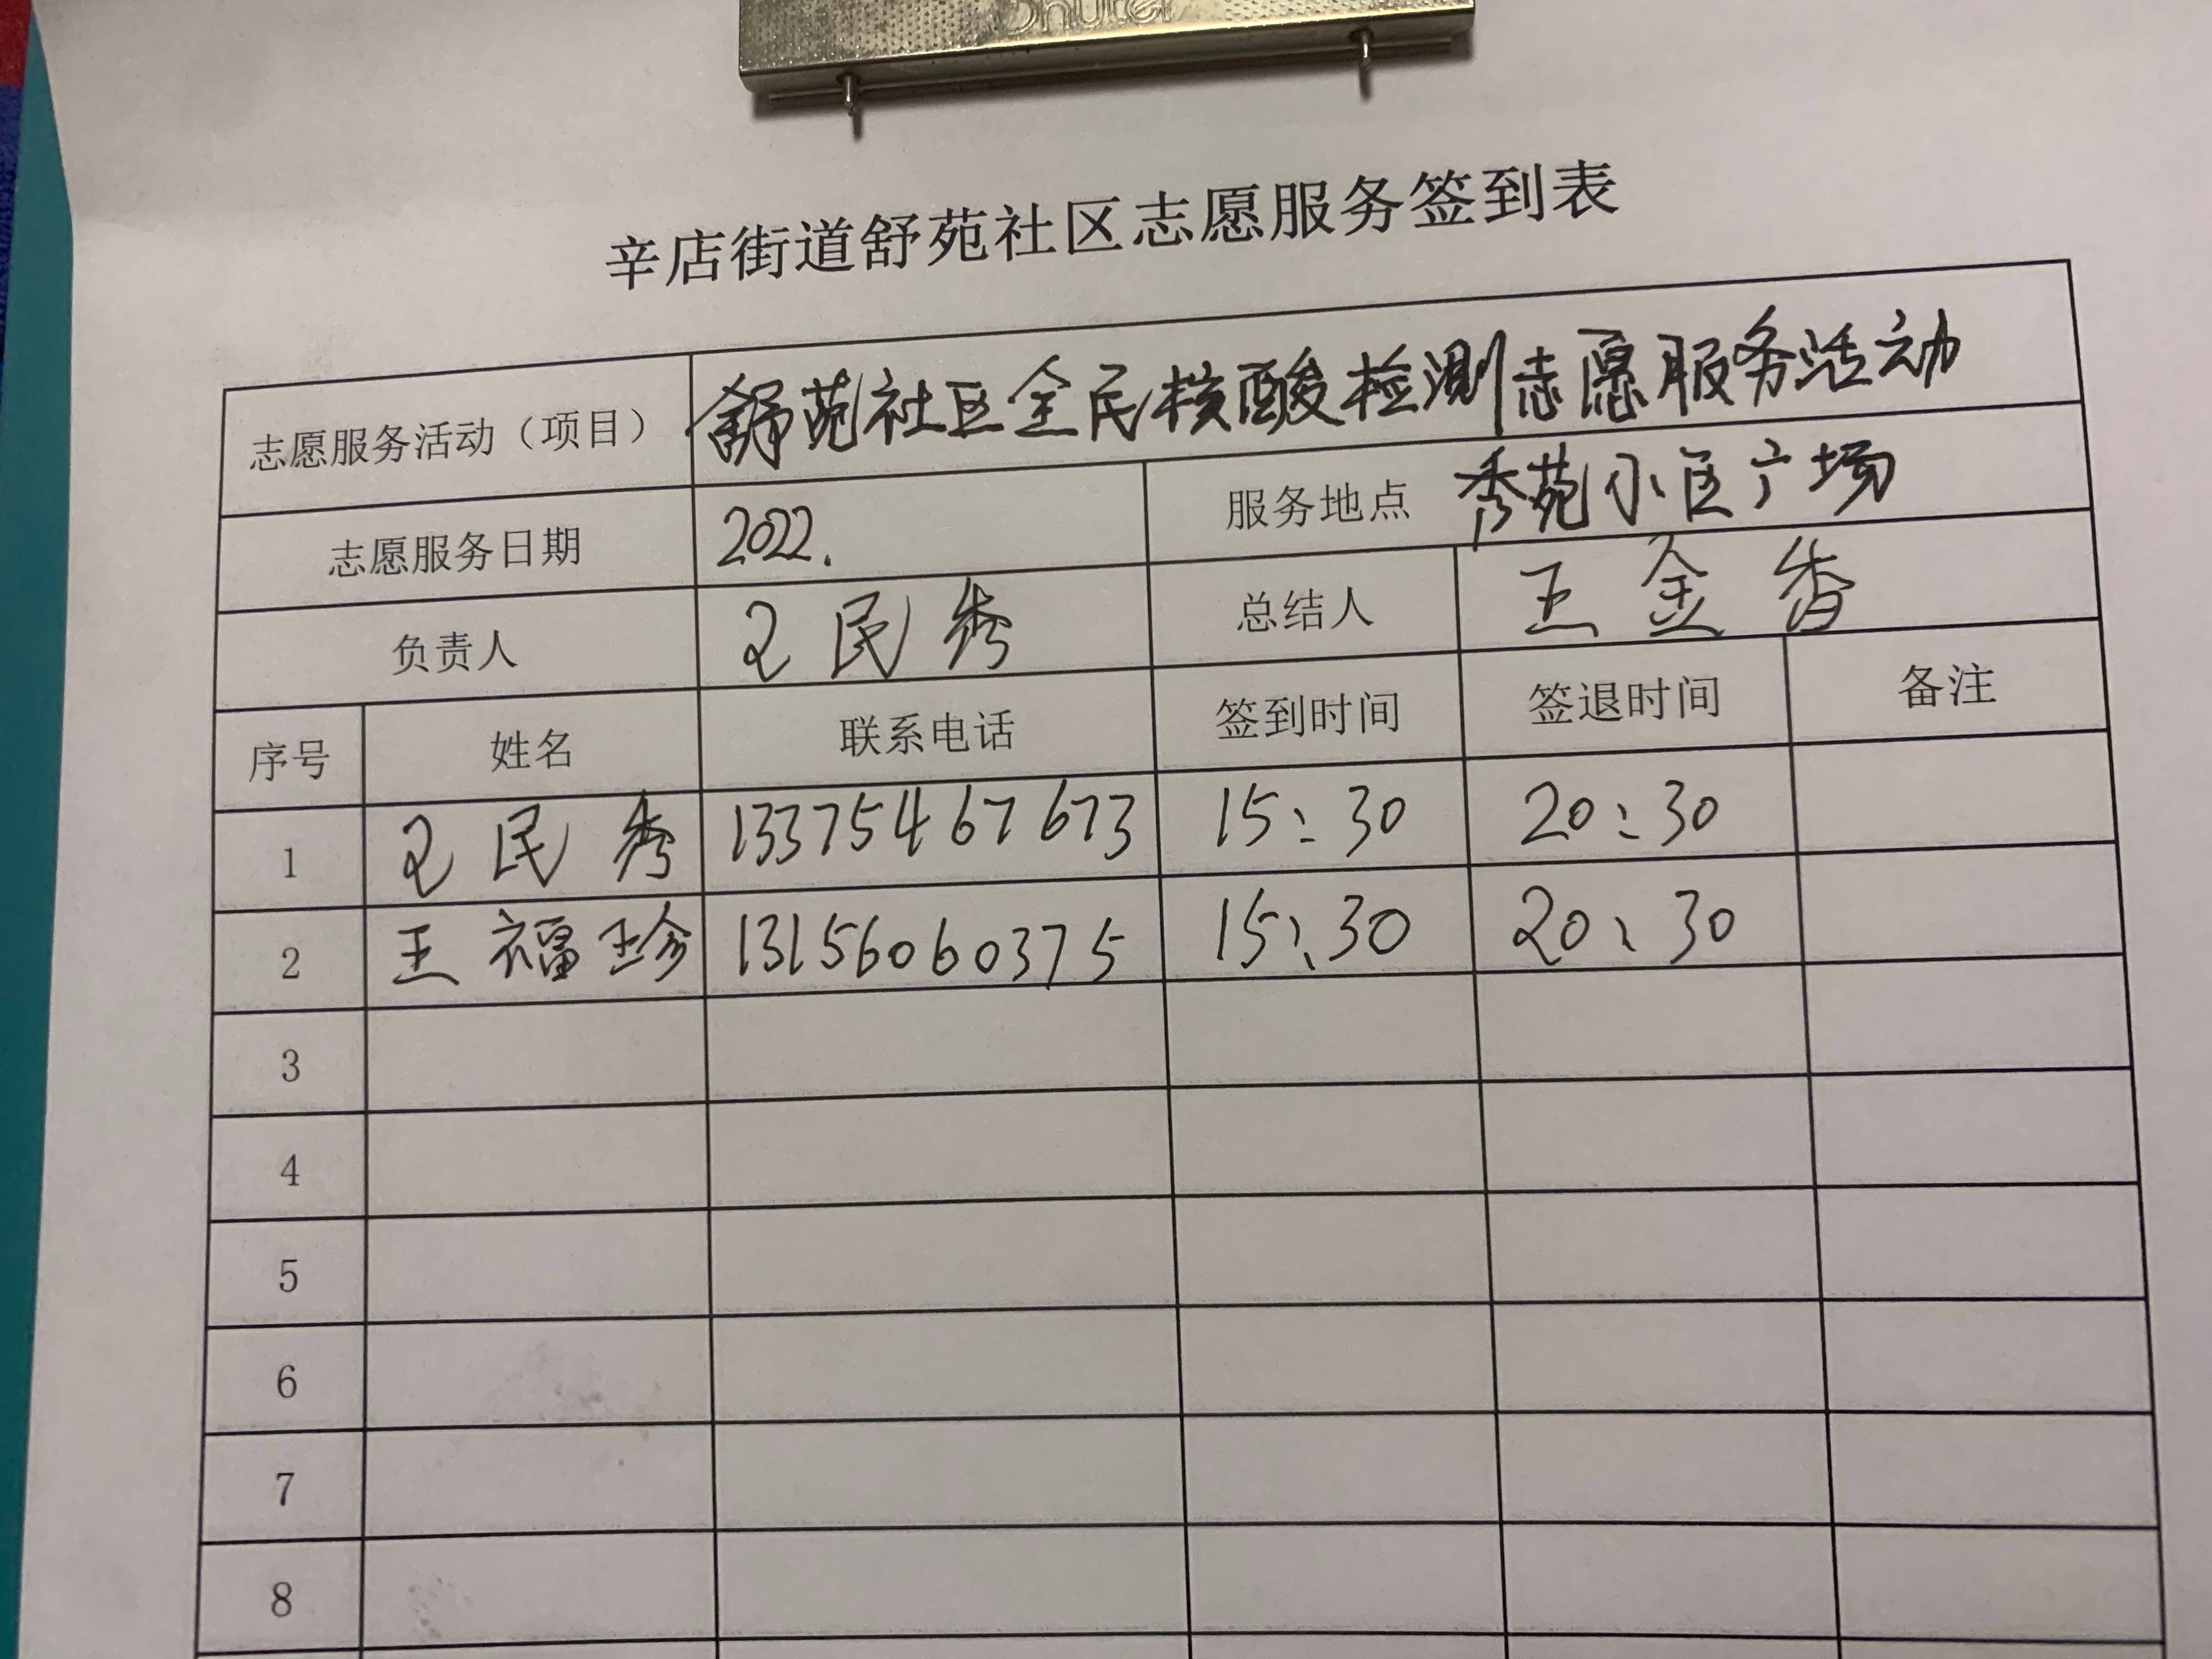 辛店街道舒苑社区志愿服务签到表
志愿服务活动（项目） 舒苑社区全民核酸检测志愿服务活动
志愿服务日期 2022. 服务地点 秀苑小区广场
负责人 王民秀 总结人 王金香
序号 姓名 联系电话 签到时间 签退时间 备注
1 王民秀 13375467673 15:30 20:30
2 王福珍 13156060375 15:30 20:30
3
4
5
6
7
8